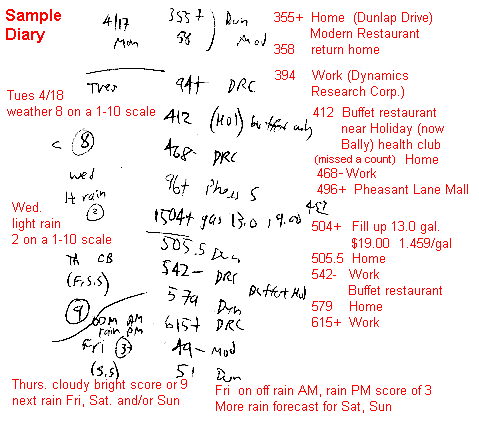 Sample
Diary
4/17 355+ Dun
Mon 58 Mod
Tues 94+ DRC
412 (Hol) buffet only
< 8 468- DRC
Wed 96+ Pheas S
lt rain
2 1504+ gas 13.0, 19.00
505.5 Dun
TH CB 542- DRC
(F,S,S) Buffet Hol
579 Dun
9 615+ DRC
rain PM
Fri 3 49- Mod
(S,S) 51 Dun
Tues 4/18
weather 8 on a 1-10 scale
Wed.
light rain
2 on a 1-10 scale
355+ Home (Dunlap Drive)
Modern Restaurant
358 return home
394 Work (Dynamics
Research Corp.)
412 Buffet restaurant
near Holiday (now
Bally) health club
(missed a count) Home
468- Work
496+ Pheasant Lane Mall
504+ Fill up 13.0 gal.
$19.00 1.459/gal
505.5 Home
542- Work
Buffet restaurant
579 Home
615+ Work
Thurs. cloudy bright score or 9
next rain Fri, Sat. and/or Sun
Fri on off rain AM, rain PM score of 3
More rain forecast for Sat, Sun